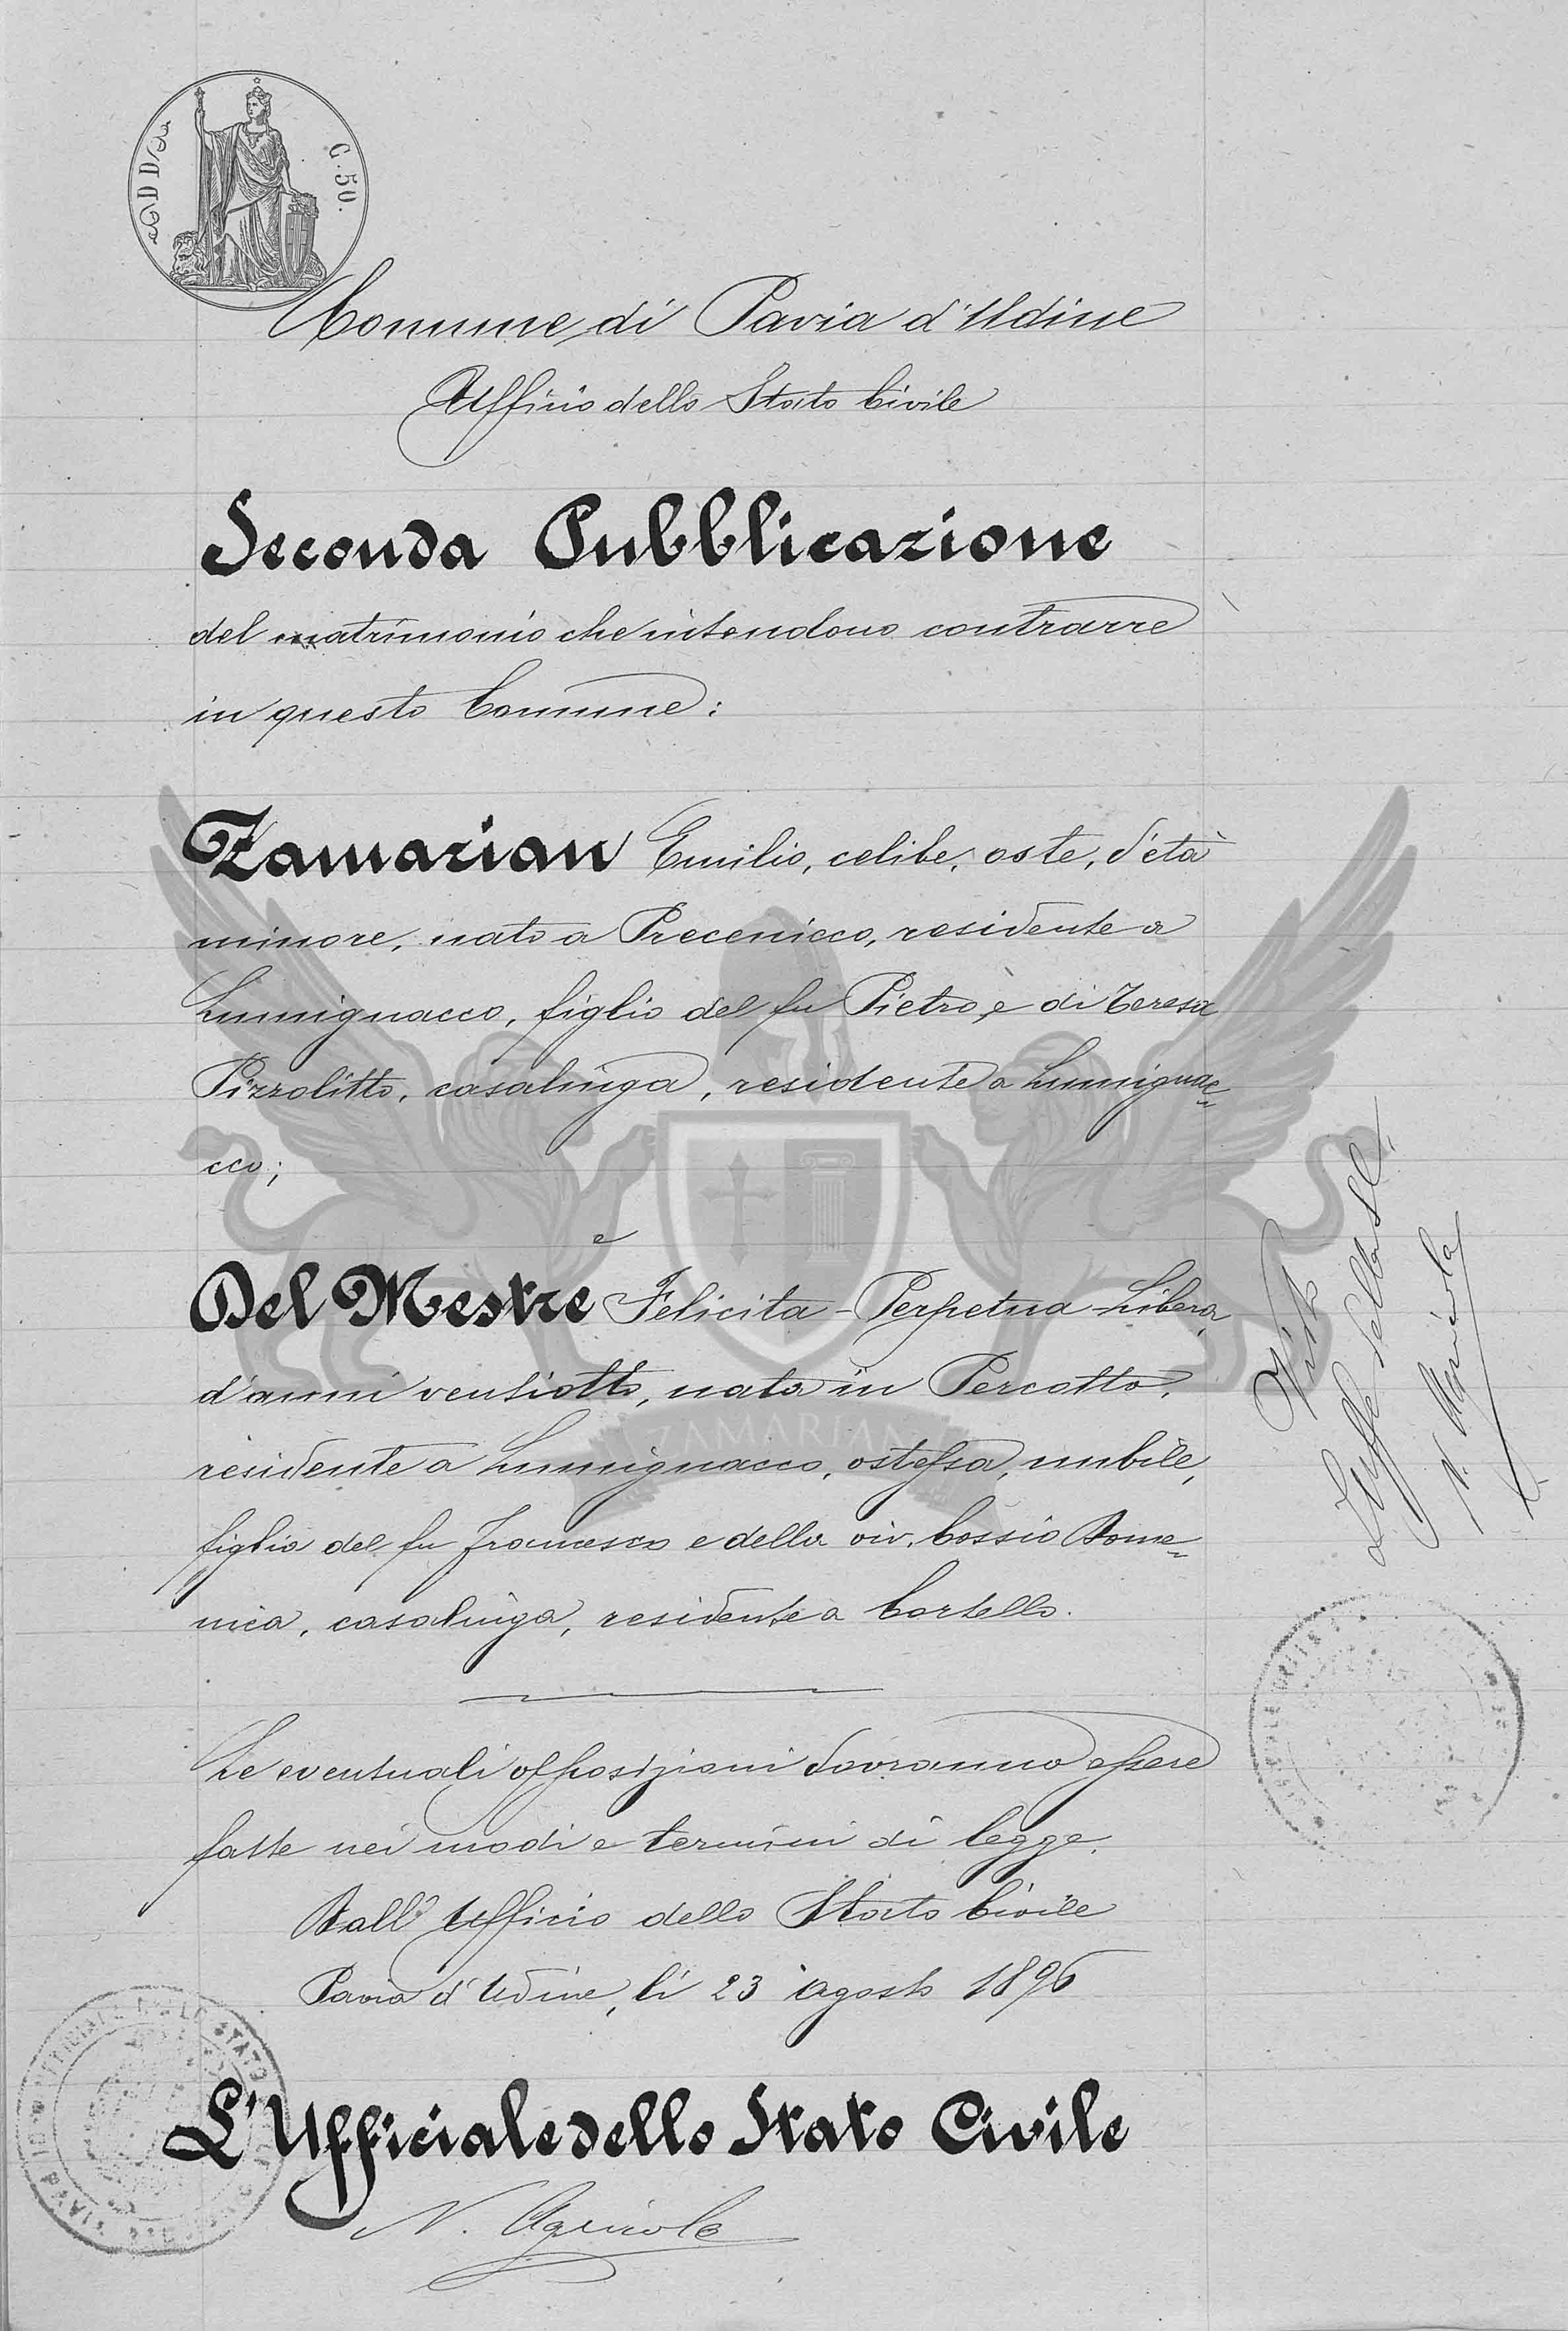 C. 50.
Comune di Pavia d'Udine
Ufficio dello Stato Civile
Seconda Pubblicazione
del matrimonio che intendono contrarre
in questo Comune:
Zamarian Emilio, celibe, oste, d'età
minore, nato a Precenicco, residente a
Lumignacco, figlio del fu Pietro e di Teresa
Pizzolitto, casalinga, residente a Lumignac=
cco;
e
Del Mestre Felicita-Perpetua-Libera,
d'anni ventiotto, nata in Percotto,
residente a Lumignacco, ostessa, nubile,
ZAMARIAN
figlia del fu Francesco e della viv. Cossio Dome=
nica, casalinga, residente a Cortello.
Le eventuali opposizioni dovranno essere
fatte nei modi e termini di legge.
Dall'Ufficio dello Stato Civile
Pavia d'Udine, li 23 agosto 1896
L'Ufficiale dello Stato Civile
N. Agricola
Visto
L'Uffle dello St. C.
N. Agricola